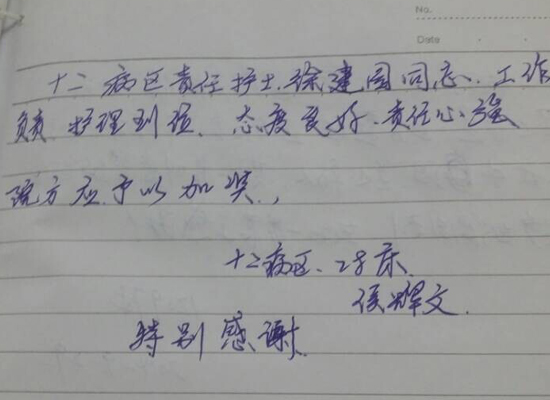 No.
Date
十二病区责任护士徐建园同志、工作
负责、护理到位、态度良好、责任心强
院方应予以加奖,
十二病区、28床
侯耀文
特别感谢